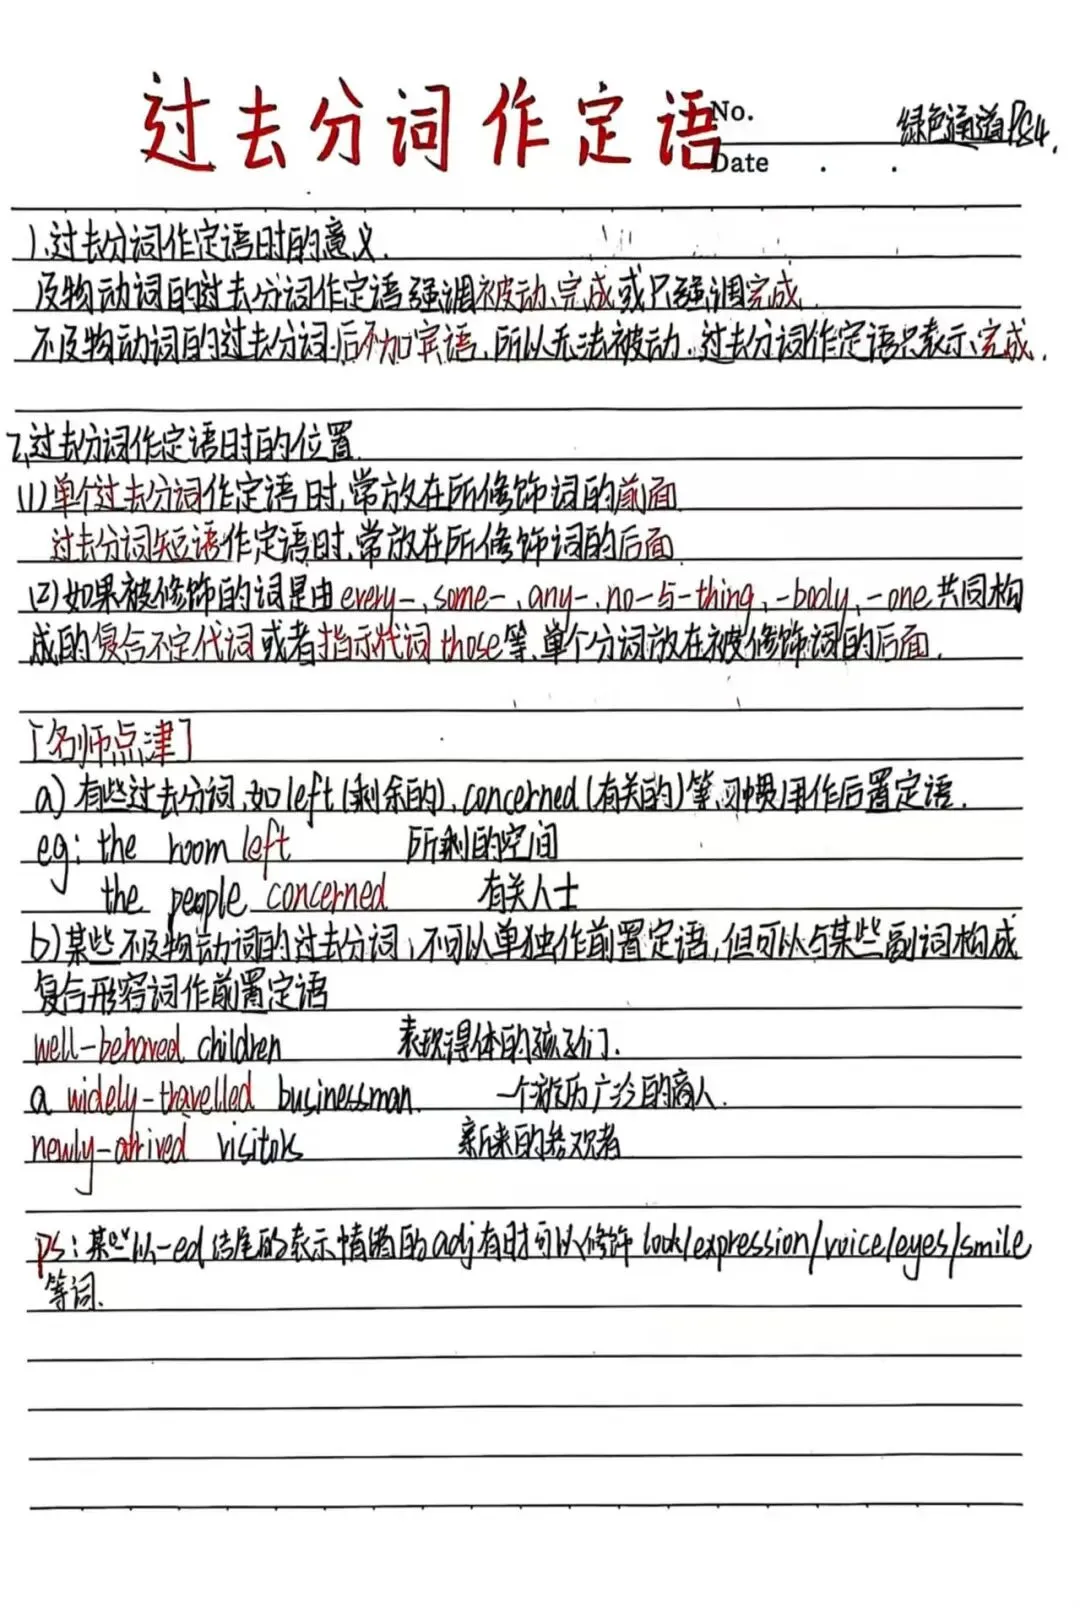 过去分词作定语
No.
绿色通道P84.
Date . .
1.过去分词作定语时的意义.
及物动词的过去分词作定语强调被动、完成或只强调完成.
不及物动词的过去分词后不加宾语,所以无法被动.过去分词作定语只表示完成.
2.过去分词作定语时的位置.
(1)单个过去分词作定语时,常放在所修饰词的前面.
过去分词短语作定语时,常放在所修饰词的后面.
(2)如果被修饰的词是由every-,some-,any-,no-与-thing,-body,-one共同构
成的复合不定代词或者指示代词those等,单个分词放在被修饰词的后面.
[名师点津]
a)有些过去分词,如left(剩余的),concerned(有关的)等习惯用作后置定语.
eg: the room left 所剩的空间
the people concerned 有关人士
b)某些不及物动词的过去分词,不可以单独作前置定语,但可以与某些副词构成
复合形容词作前置定语
well-behaved children 表现得体的孩子们.
a widely-travelled businessman. 一个游历广泛的商人.
newly-arrived visitors 新来的参观者
ps:某些以-ed结尾的表示情绪的adj有时可以修饰look/expression/voice/eyes/smile
等词.